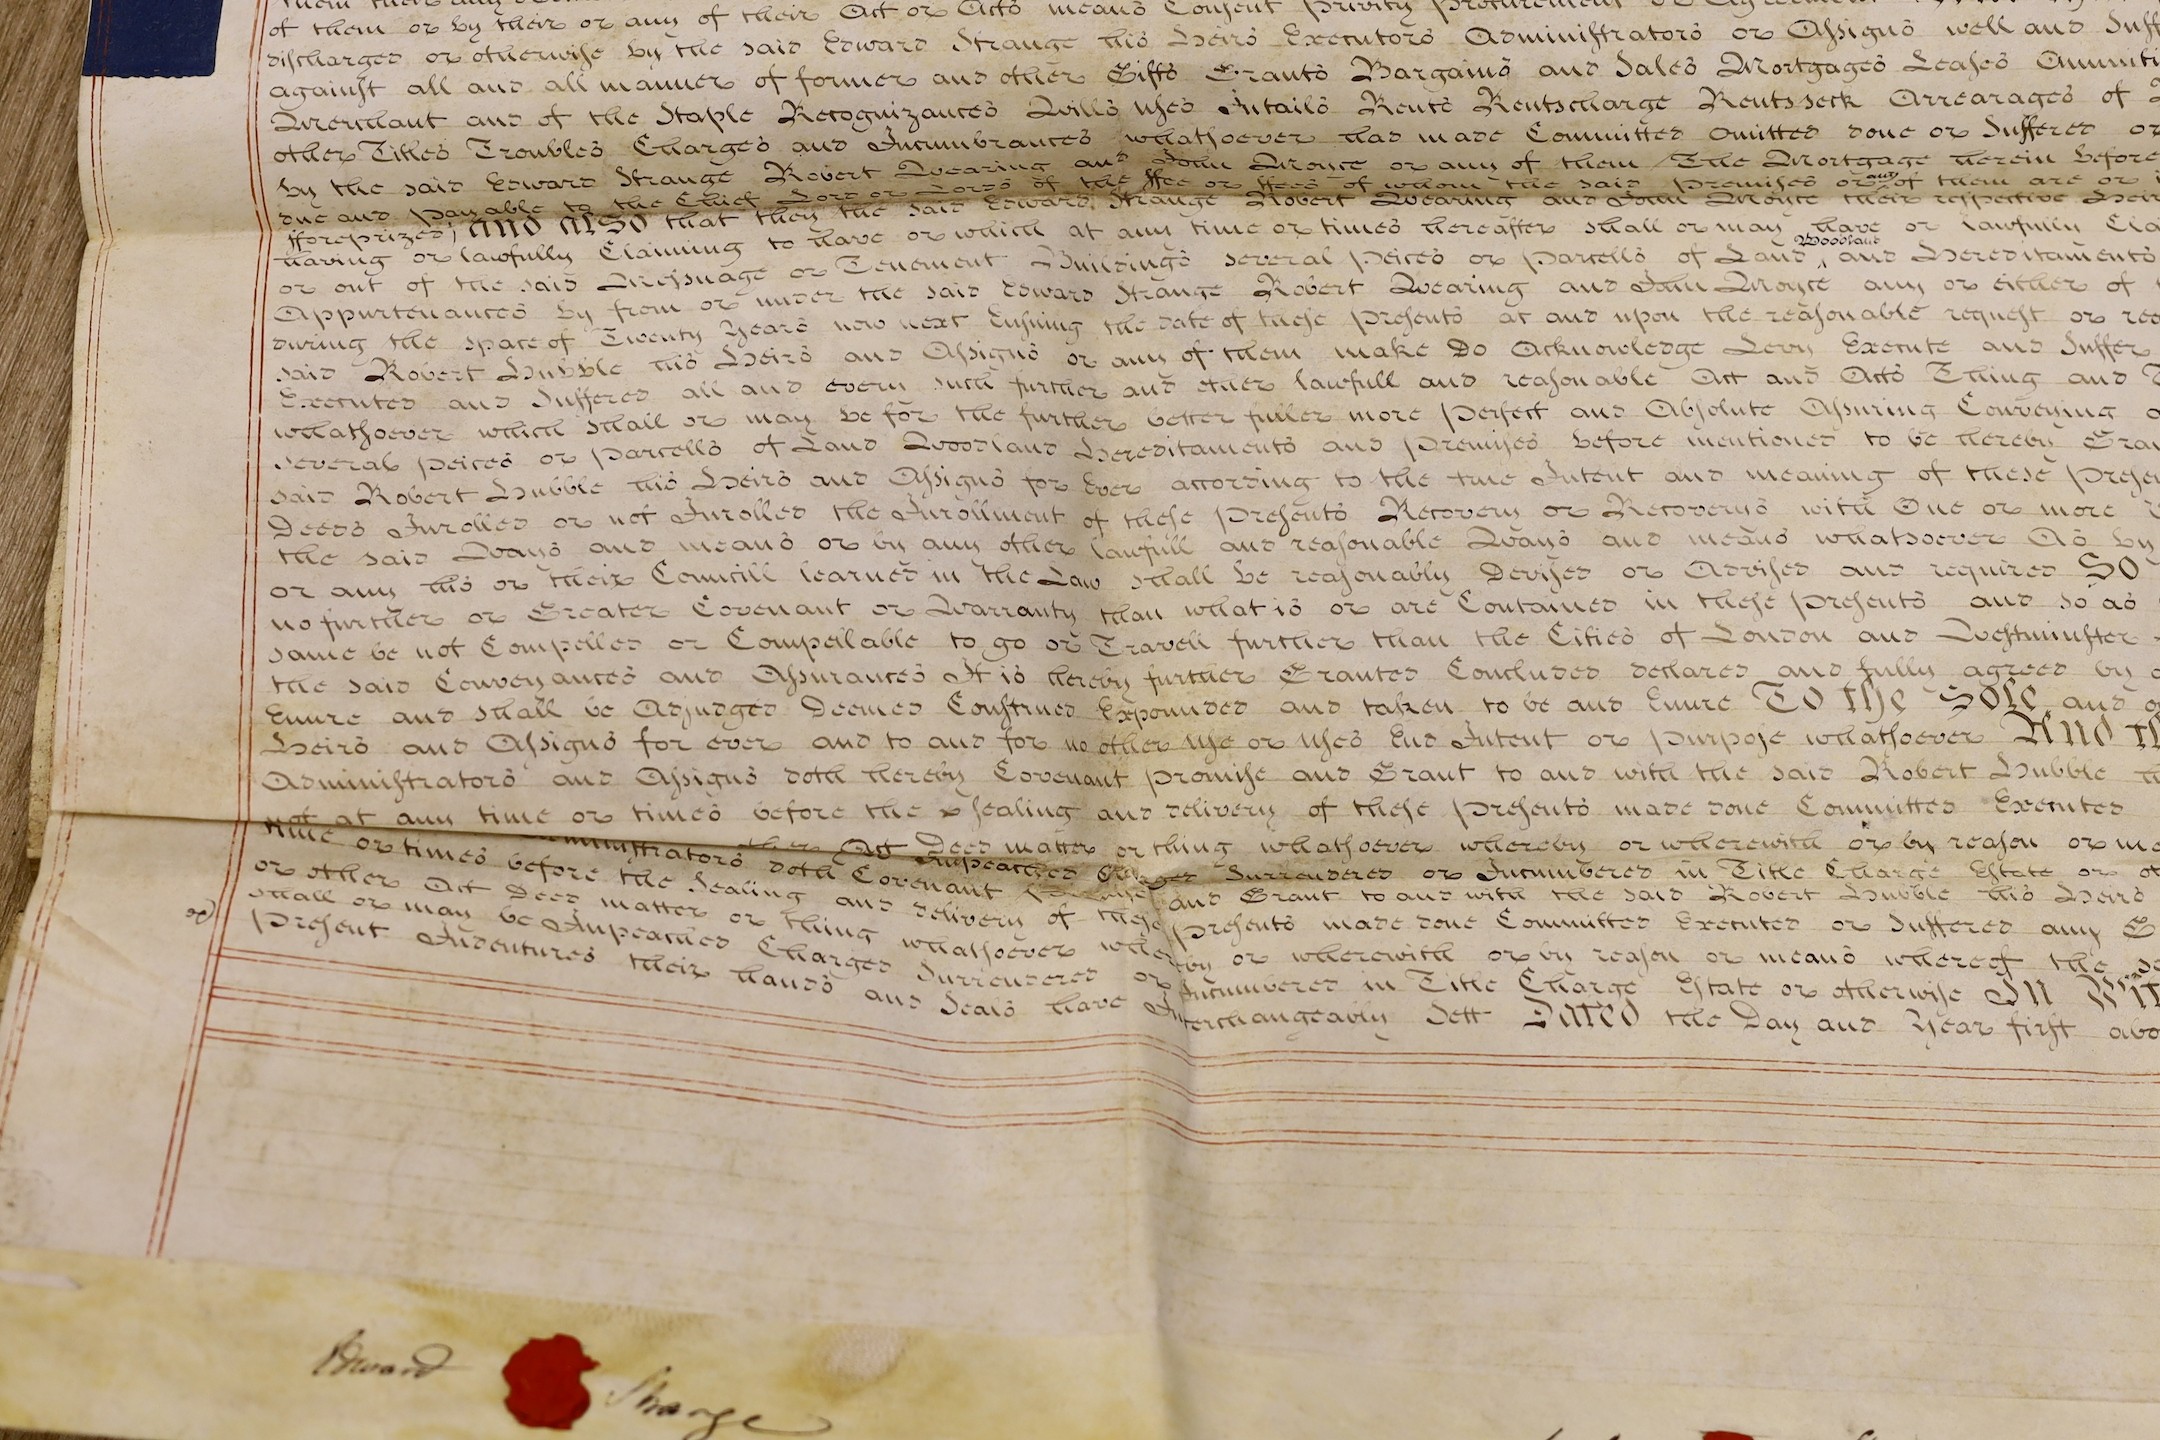 of them or by their or any of their Act or Acts means Consent Privity Procurement
discharged or otherwise by the said Edward Strange his Heirs Executors Administrators or Assigns well and
against all and all manner of former and other Gifts Grants Bargains and Sales Mortgages Leases
Merchant and of the Staple Recognizances Wills Uses Intails Rents Rentscharge Rentsseck Arrearages of
other Titles Troubles Charges and Incumbrances whatsoever had made Committed omitted done or Suffered or
by the said Edward Strange Robert Wearing and John Moyce or any of them The Mortgage herein before
due and payable to the Chief Lord or Lords of the ffee or ffees of whom the said premises or any of them are or
fforeprized) And Also that they the said Edward Strange Robert Wearing and John Moyce their respective Heirs
having or lawfully Claiming to have or which at any time or times hereafter shall or may have or lawfully
or out of the said Messuage or Tenement Buildings several peices or parcells of Land Woodland and Hereditaments
Appurtenances by from or under the said Edward Strange Robert Wearing and John Moyce any or either of
during the space of Twenty Years now next Ensuing the date of these presents at and upon the reasonable request or
said Robert Hubble his Heirs and Assigns or any of them make Do Acknowledge Levy Execute and Suffer
Executed and Suffered all and every such further and other lawfull and reasonable Act and Acts Thing and
whatsoever which shall or may be for the further better fuller more perfect and Absolute Assuring Conveying
several peices or parcells of Land Woodland Hereditaments and premises before mentioned to be hereby
said Robert Hubble his Heirs and Assigns for Ever according to the true Intent and meaning of these
Deeds Inrolled or not Inrolled the Inrollment of these presents Recovery or Recoverys with One or more
the said Ways and means or by any other lawfull and reasonable Ways and means whatsoever As by
or any his or their Councill learned in the Law shall be reasonably Devised or Advised and required So
no further or Greater Covenant or Warranty than what is or are Contained in these presents and so as
same be not Compelled or Compellable to go or Travell further than the Cities of London and Westminster
the said Conveyances and Assurances It is hereby further Granted Concluded declared and fully agreed by
Enure and shall be Adjudged Deemed Construed Expounded and taken to be and Enure To the Sole and
Heirs and Assigns for ever and to and for no other Use or Uses End Intent or purpose whatsoever And
Administrators and Assigns doth hereby Covenant promise and Grant to and with the said Robert Hubble
not at any time or times before the sealing and delivery of these presents made done Committed Executed
Act Deed matter or thing whatsoever whereby or wherewith or by reason or
Impeached Surrendered or Incumbered in Title Charge Estate or
doth Covenant and Grant to and with the said Robert Hubble his Heirs
time or times before the Sealing and delivery of these presents made done Committed Executed or Suffered any
or other Act Deed matter or thing whatsoever whereby or wherewith or by reason or means whereof the
shall or may be Impeached Charged Surrendered or Incumbered in Title Charge Estate or otherwise In
present Indentures their hands and Seals have Interchangeably Sett Dated the Day and Year first
Edward Strange